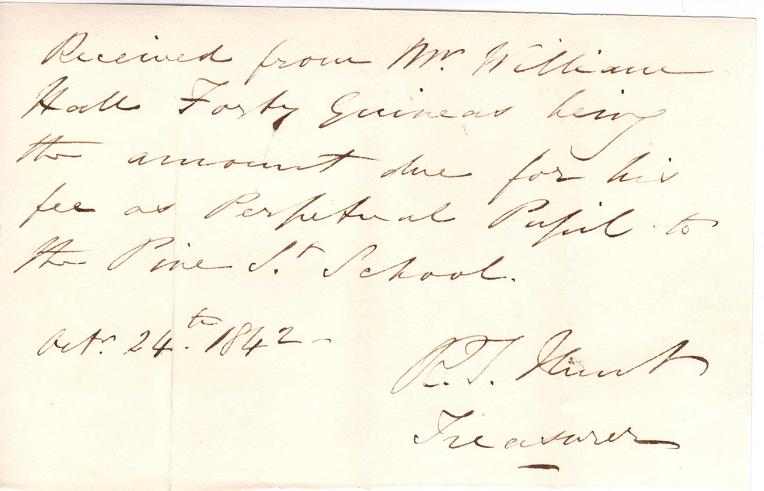 Received from Mr. William
Hall Forty Guineas being
the amount due for his
fee as Perpetual Pupil to
the Pine St School.
Octr. 24th. 1842 -
R. T. Hunt
Treasurer